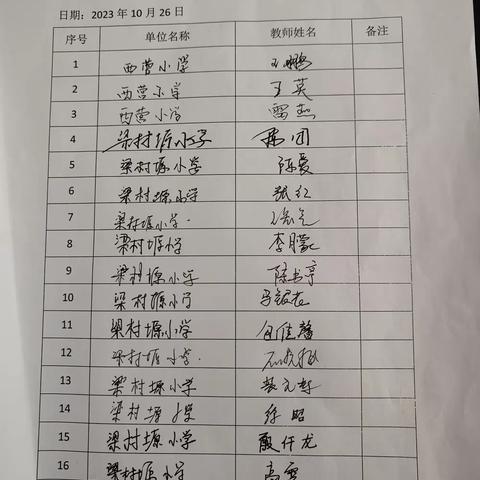 日期：2023 年 10 月 26 日
序号 单位名称 教师姓名 备注
1 西营小学 王鹏
2 西营小学 丁英
3 西营小学 雷燕
4 梁村塬小学
5 梁村塬小学 陈爱
6 梁村塬小学 张红
7 梁村塬小学
8 梁村塬小学 李朦
9 梁村塬小学 陈书亭
10 梁村塬小学
11 梁村塬小学 白佳馨
12 梁村塬小学
13 梁村塬小学
14 梁村塬小学 徐昭
15 梁村塬小学 殷仟龙
16 梁村塬小学 高雪